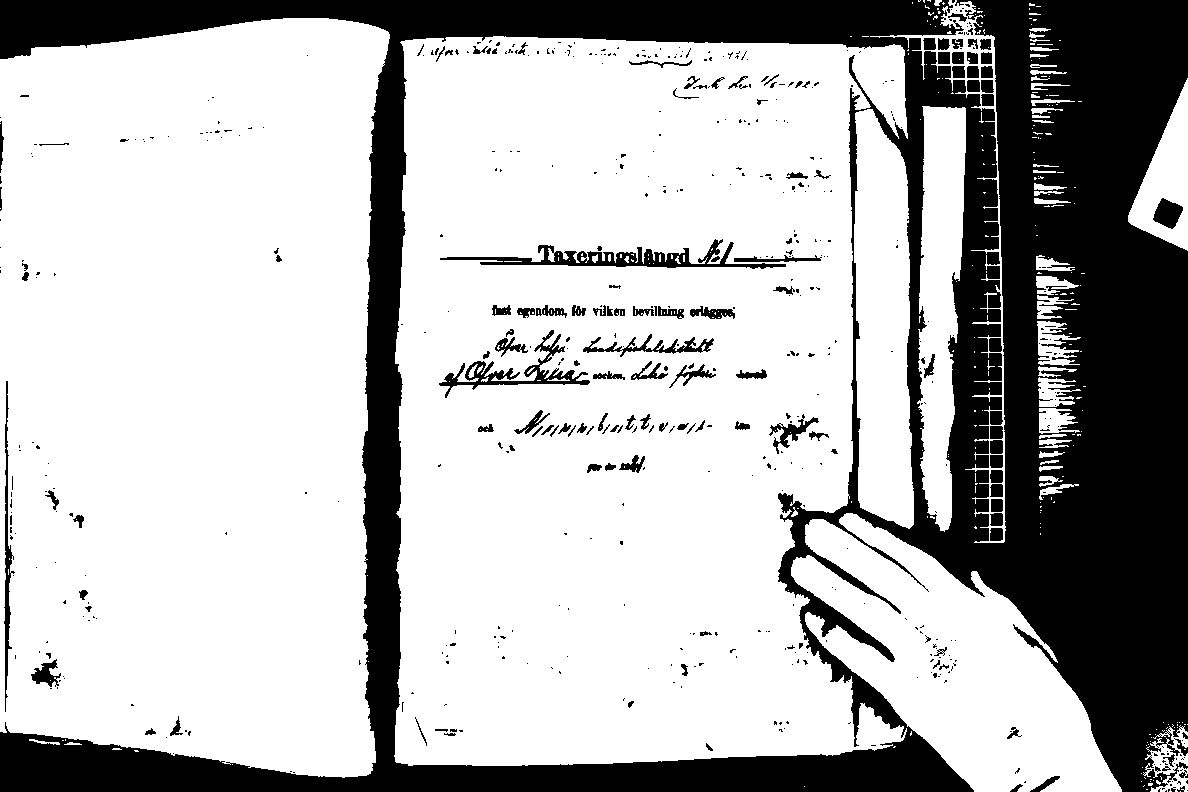 Öfver Luleå
Ink den 1/6-1921
Taxeringslängd № 1
fast egendom, för vilken bevillning erlägges,
Öfver Luleå Landsfiskalsdistrikt
af Öfver Luleå socken, Luleå fögderi
och Norrbottens län
för år 1921.